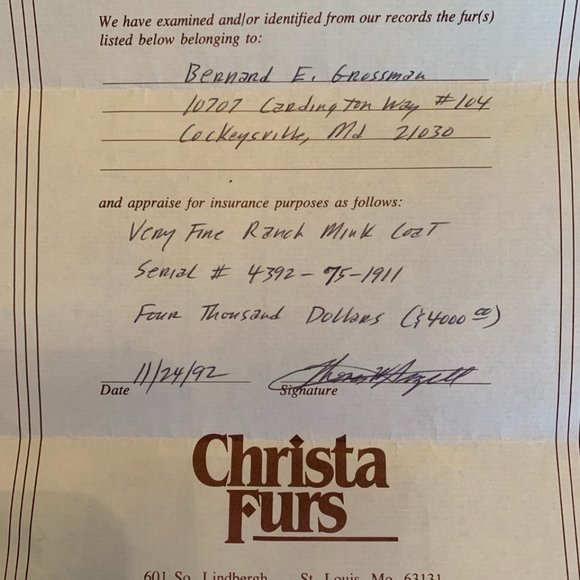 We have examined and/or identified from our records the fur(s)
listed below belonging to:
Bernard E. Grossman
10707 Cardington Way #104
Cockeysville, Md 21030
and appraise for insurance purposes as follows:
Very Fine Ranch Mink Coat
Serial # 4392-75-1911
Four Thousand Dollars ($4000 00)
11/24/92
Date Signature
Christa
Furs
601 So. Lindbergh St. Louis, Mo. 63131